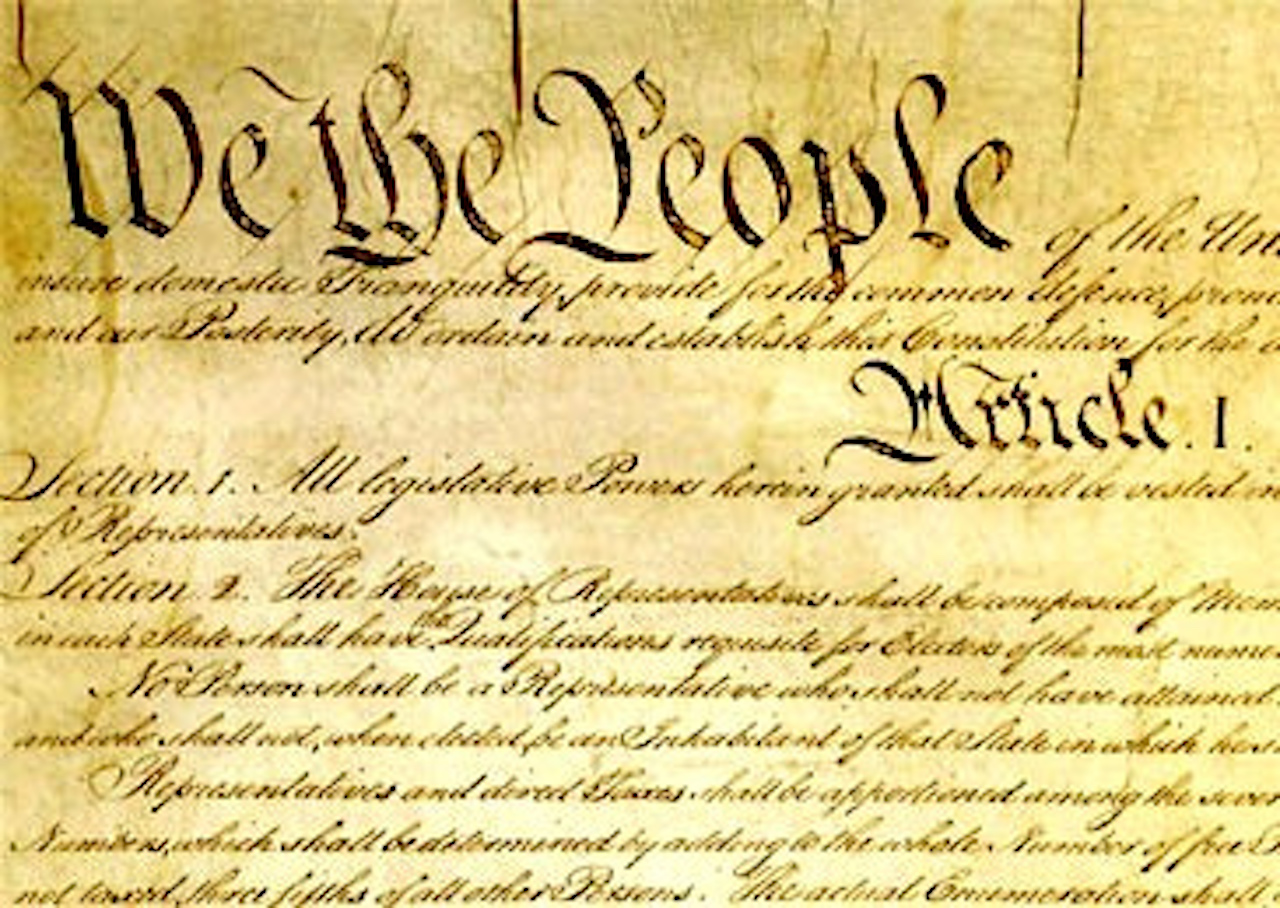 We the People of the Un
insure domestic Tranquility, provide for the common defence, promo
and our Posterity, do ordain and establish this Constitution for the
Article. I.
Section. 1. All legislative Powers herein granted shall be vested in
of Representatives.
Section. 2. The House of Representatives shall be composed of Mem
in each State shall have the Qualifications requisite for Electors of the most nume
No Person shall be a Representative who shall not have attained
and who shall not, when elected, be an Inhabitant of that State in which he
Representatives and direct Taxes shall be apportioned among the sever
Numbers, which shall be determined by adding to the whole Number of free
not taxed, three fifths of all other Persons. The actual Enumeration shall